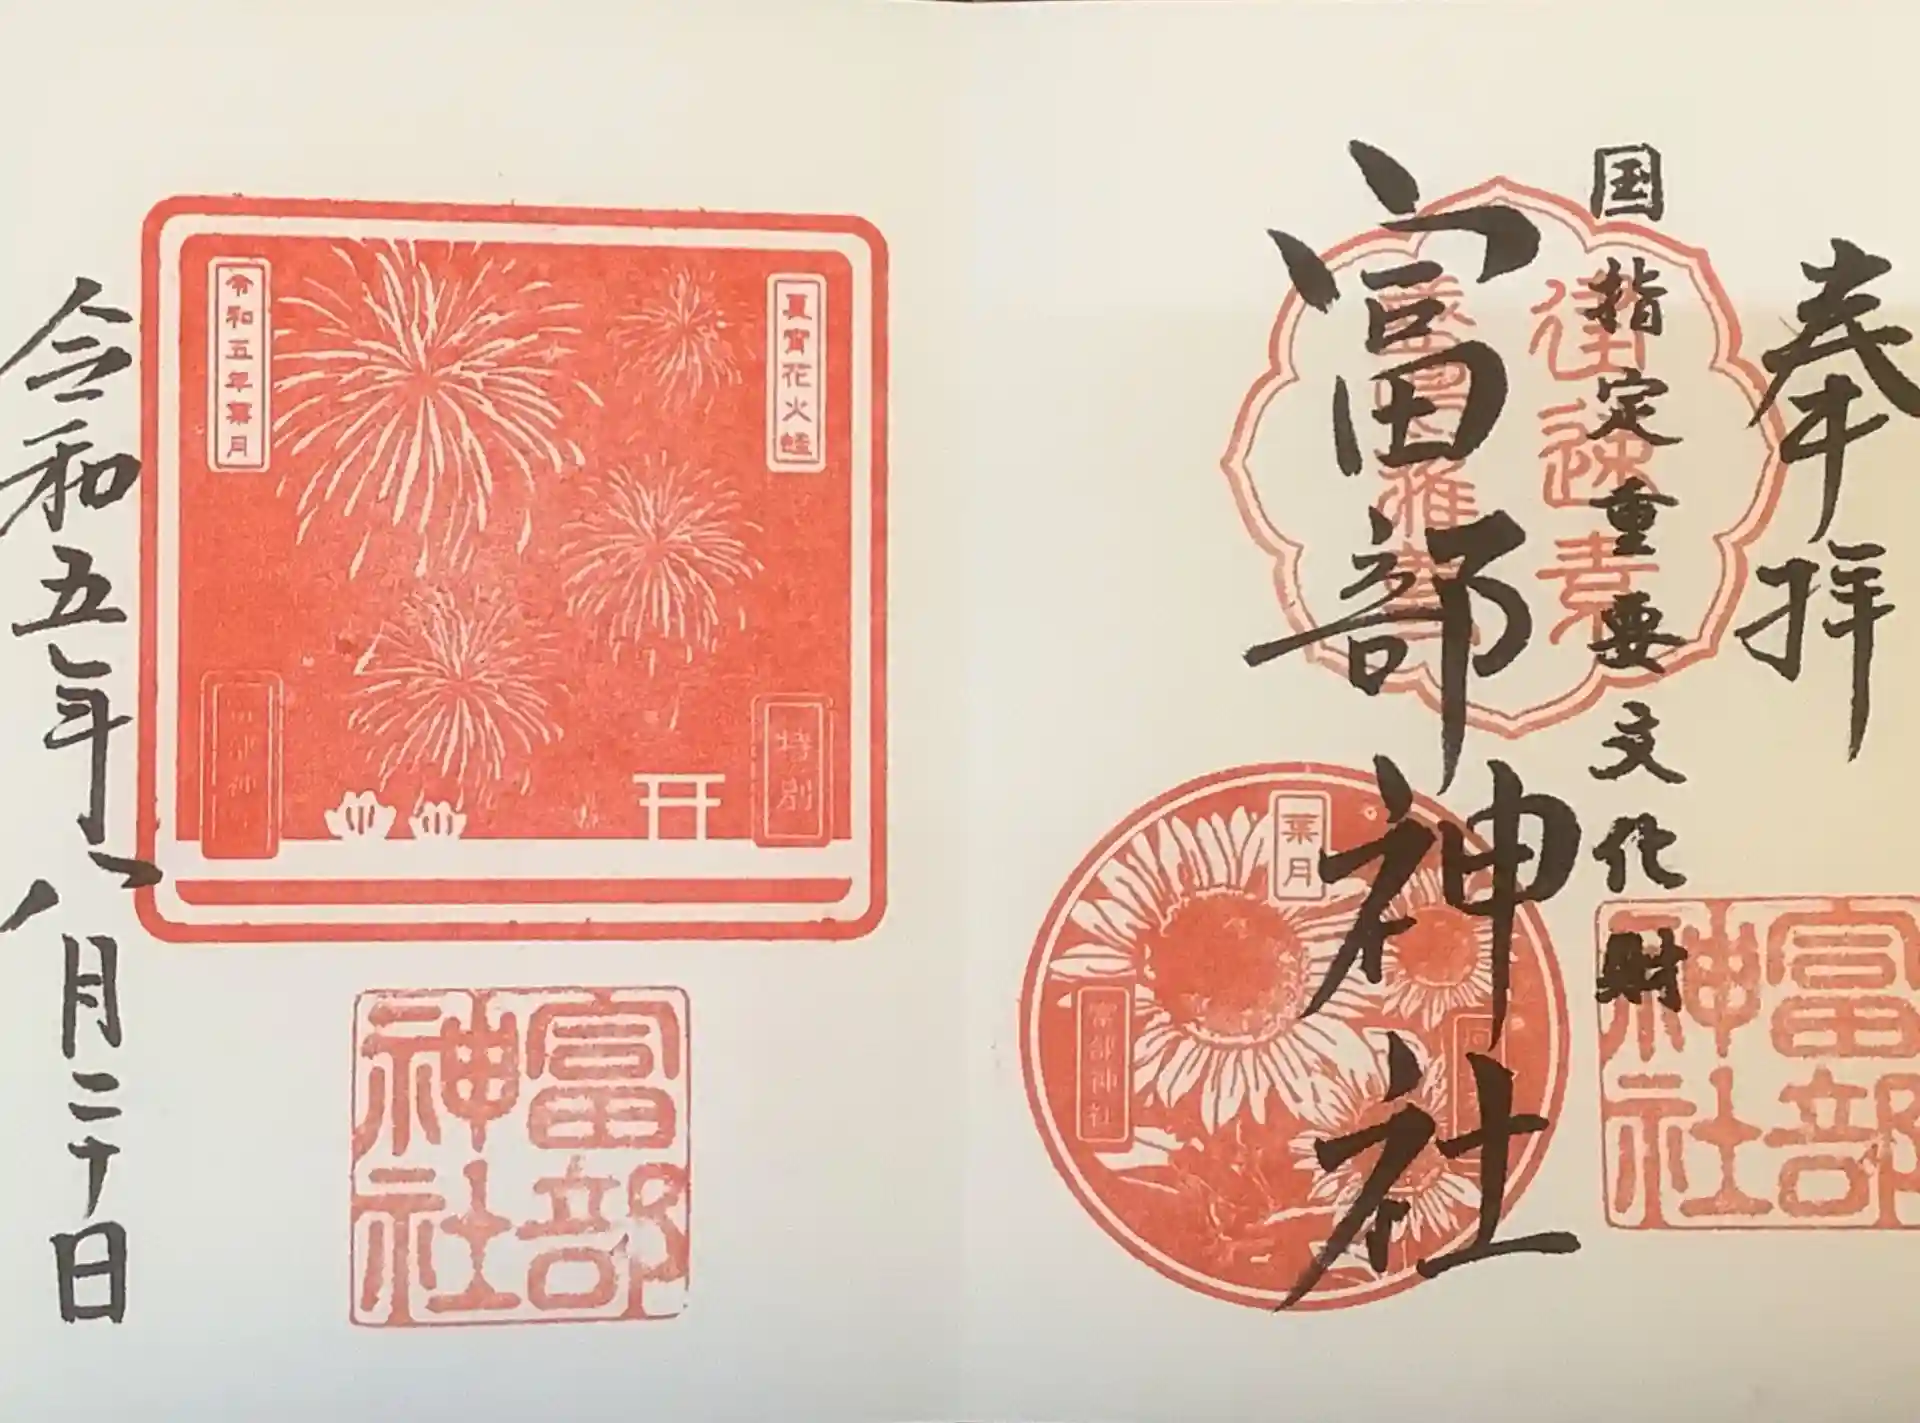 奉拝
国指定重要文化財
富部神社
富部神社
葉月
富部神社
夏宵花火
特別
令和五年葉月
富部神社
令和五年八月二十日